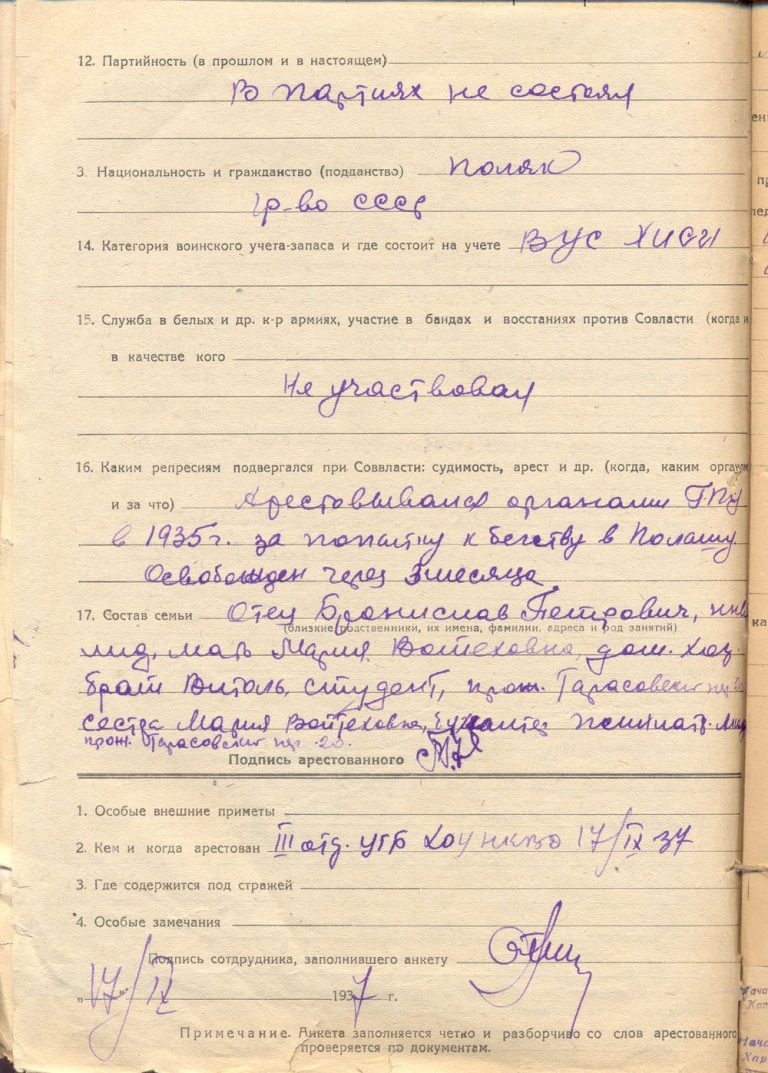 12. Партийность (в прошлом и в настоящем)
В партиях не состоял
3. Национальность и гражданство (подданство) поляк
гр-во СССР
14. Категория воинского учета-запаса и где состоит на учете ВУС ХИСИ
15. Служба в белых и др. к-р армиях, участие в бандах и восстаниях против Совласти (когда и
в качестве кого
Не участвовал
16. Каким репресиям подвергался при Соввласти: судимость, арест и др. (когда, каким органом
и за что) Арестовывался органами ГПУ
в 1935г. за попытку к бегству в Польшу
Освобожден через 3 месяца
17. Состав семьи Отец Бронислав Петрович, инва
(близкие родственники, их имена, фамилии, адреса и род занятий)
лид, мать Мария Войтеховна, дом. хоз.
брат Витоль, студент, прож. Тарасовский пер
сестра Мария Войтеховна, бухгалтер
прож. Тарасовский пер. 20.
Подпись арестованного
1. Особые внешние приметы
2. Кем и когда арестован III отд. УГБ ХОУ НКВД 17/IX 37
3. Где содержится под стражей
4. Особые замечания
Подпись сотрудника, заполнившего анкету
„17" IX 1937 г.
Примечание. Анкета заполняется четко и разборчиво со слов арестованного
проверяется по документам.